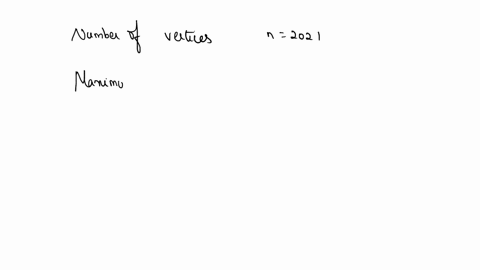 Number of vertices n = 2021
Maximu